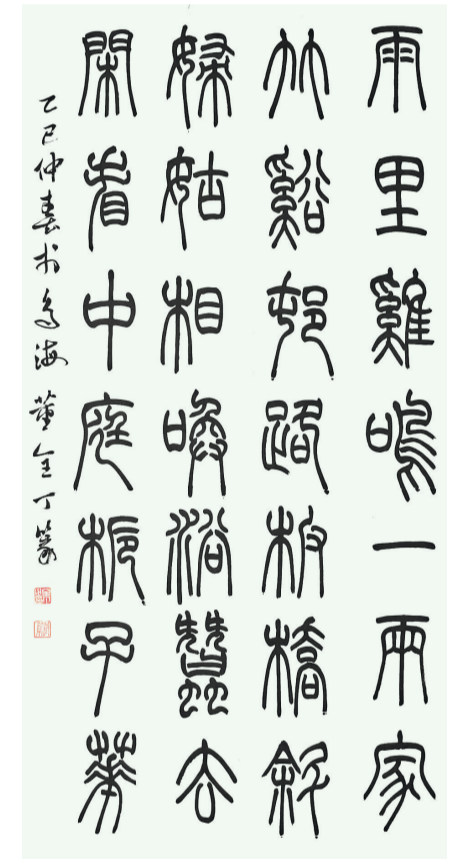 雨里雞鳴一兩家
竹谿邨路板橋斜
婦姑相喚浴蠶去
閑看中庭梔子華
乙巳仲春於烏海董金丁篆